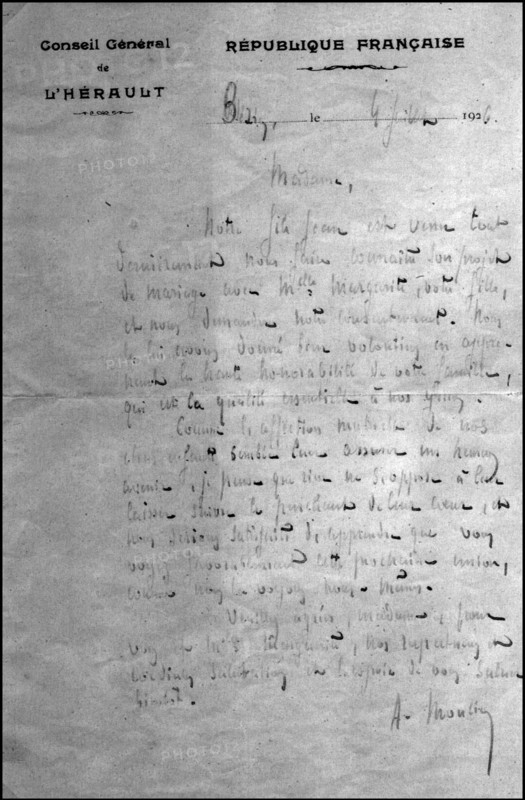 Conseil Général
de
L'HÉRAULT
RÉPUBLIQUE FRANÇAISE
le 4 Juillet 1926
Madame,
Notre fils Jean est venu tout
dernièrement nous faire connaître son projet
de mariage avec Melle Marguerite, votre fille,
et nous demander notre consentement. Nous
le lui avons donné bien volontiers en
la haute honorabilité de votre famille,
qui est la qualité essentielle à nos yeux.
Comme l'affection mutuelle de nos
enfants semble leur assurer un heureux
avenir, je pense que rien ne s'oppose à leur
laisser suivre le penchant de leur cœur, et
nous serions satisfaits d'apprendre que vous
voyez favorablement cette prochaine union,
comme nous la voyons nous-mêmes.
Veuillez agréer, Madame, pour
vous et Melle Marguerite, nos respectueuses et
cordiales salutations et l'espoir de vous
bientôt.
A. Moulin
PHOTO12
PHOTO12
PHOTO12
PHOTO12